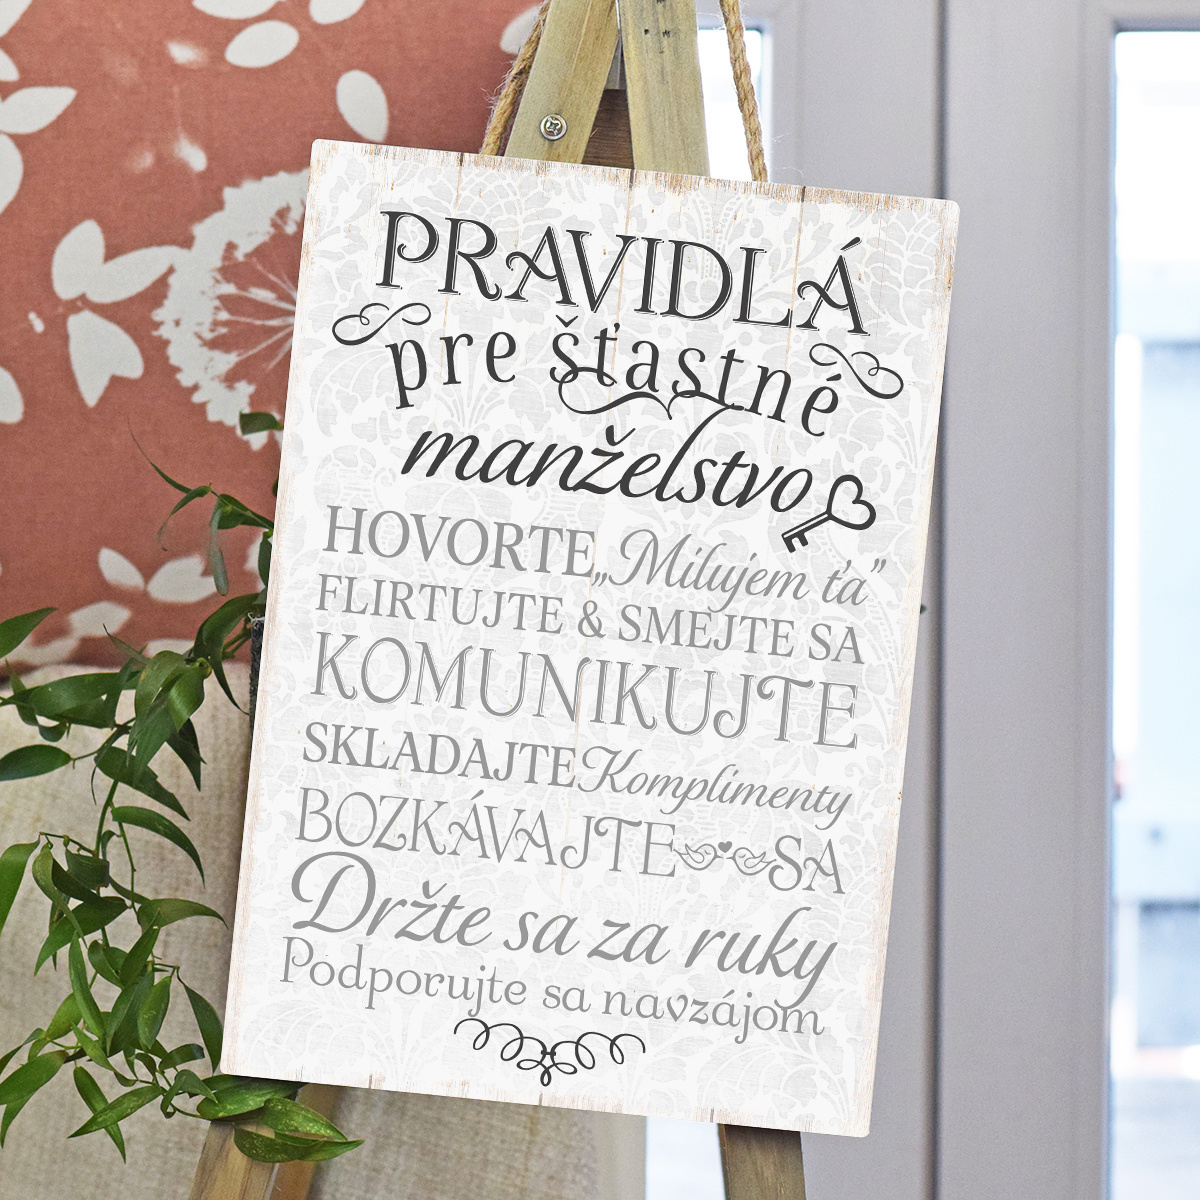 PRAVIDLÁ
pre šťastné
manželstvo
HOVORTE „Milujem ťa”
FLIRTUJTE & SMEJTE SA
KOMUNIKUJTE
SKLADAJTE Komplimenty
BOZKÁVAJTE SA
Držte sa za ruky
Podporujte sa navzájom